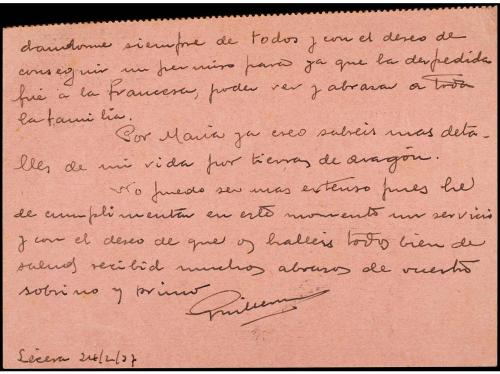 dandome siempre de todos y con el deseo de
conseguir un permiso para ya que la despedida
fué a la francesa, poder ver y abrazar a toda
la familia.
Por Maria ya creo sabreis mas deta-
lles de mi vida por tierras de aragón.
No puedo ser mas extenso pues he
de cumplimentar en este momento un servicio
y con el deseo de que os halleis todos bien de
salud recibid muchos abrazos de vuestro
sobrino y primo
Guillermo
Lécera 24/2/37